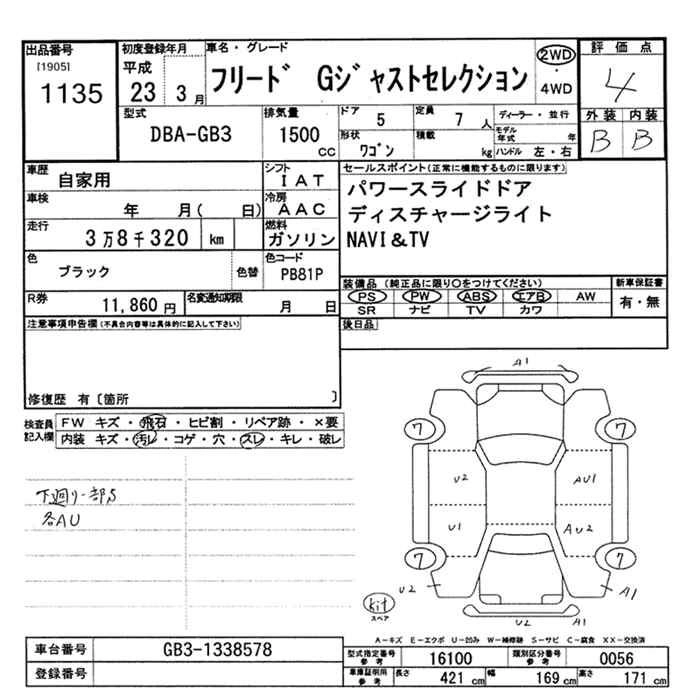 出品番号
[1905]
1135
初度登録年月
平成
23 3月
車名・グレード
フリード Gジャストセレクション
2WD
・
4WD
評価点
4
型式
DBA-GB3
排気量
1500
cc
ドア
5
定員
7 人
形状
ワゴン
積載
kg
ディーラー・並行
モデル年式 年
ハンドル 左・右
外装 内装
B B
車歴
自家用
シフト
IAT
車検
年 月( 日)
冷房
AAC
走行
3万8千320 km
燃料
ガソリン
色
ブラック
色替
色コード
PB81P
R券
11,860 円
名変通知期限
月 日
セールスポイント(正常に機能するものに限ります)
パワースライドドア
ディスチャージライト
NAVI&TV
装備品 (純正品に限り○をつけてください)
新車保証書
PS PW ABS エアB AW
SR ナビ TV カワ
有・無
後日品
注意事項申告欄(不具合内容等は具体的に記入して下さい)
修復歴 有〔箇所 〕
検査員記入欄
FW キズ・飛石・ヒビ割・リペア跡・×要
内装 キズ・汚レ・コゲ・穴・スレ・キレ・破レ
下廻り一部S
各AU
A1
7 7
U2 AU1
U1 AU2
7 7
U2 A1
kit
スペア
U2 A1
A-キズ E-エクボ U-凹み W-補修跡 S-サビ C-腐食 XX-交換済
車台番号
GB3-1338578
登録番号
型式指定番号
参考
16100
類別区分番号
参考
0056
車庫証明用
参考
長さ 421 cm 幅 169 cm 高さ 171 cm